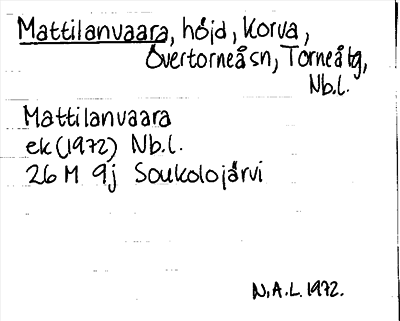 Mattilanvaara, höjd, Korva,
Övertorneå sn, Torneå tg,
Nb.l.
Mattilanvaara
ek (1972) Nb.l.
26 M 9j Soukolojärvi
N.A.L. 1972.